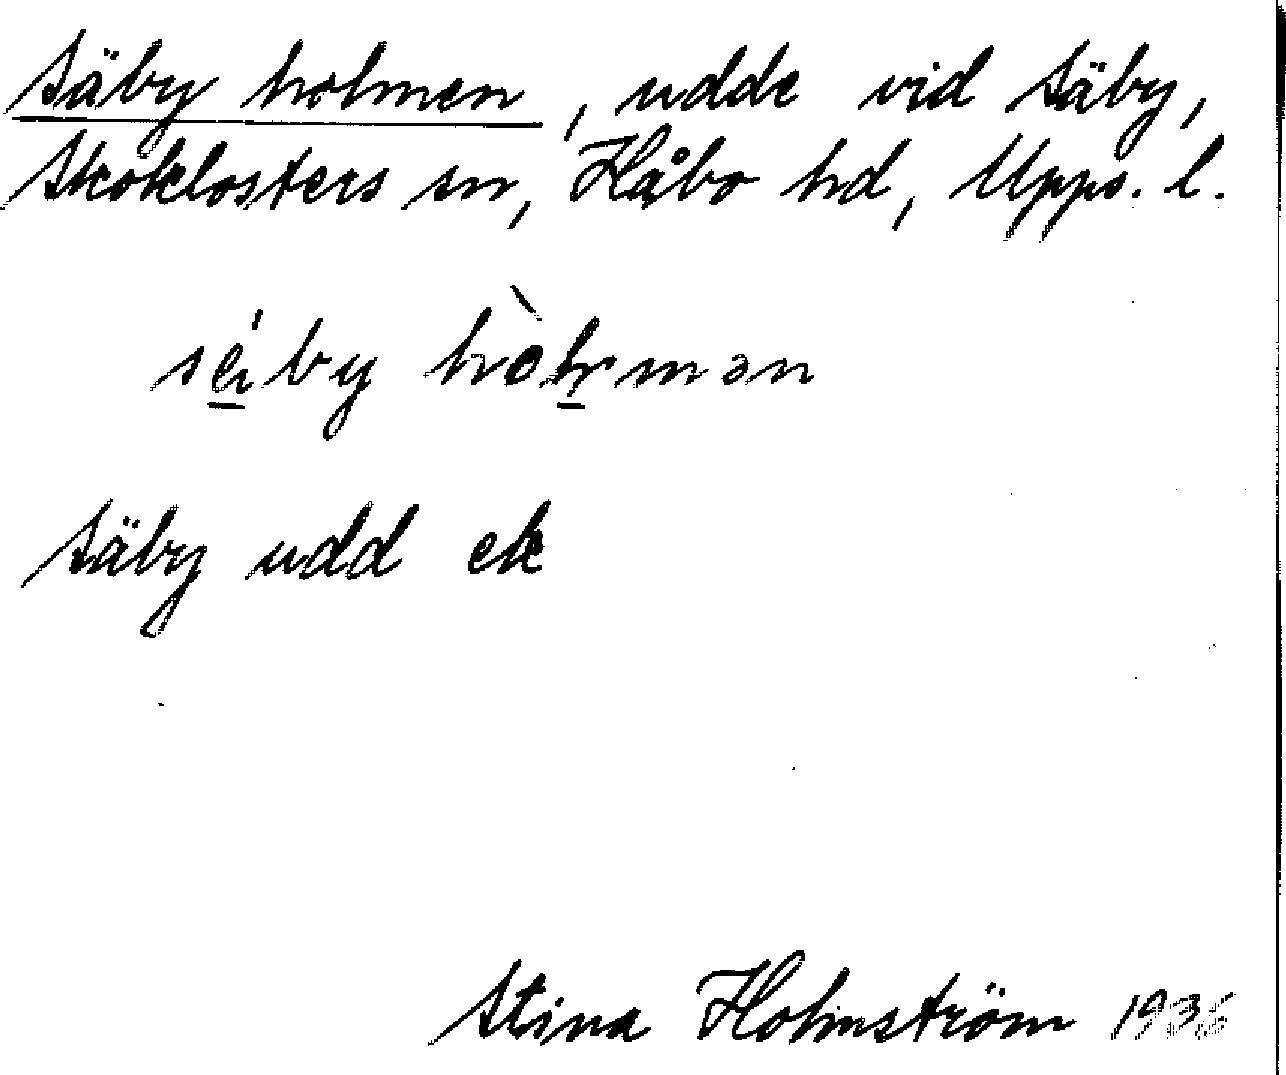 Säby holmen, udde vid Säby,
Skoklosters sn, Håbo hd, Upps. l.
Säby udd ek
Stina Holmström 1936